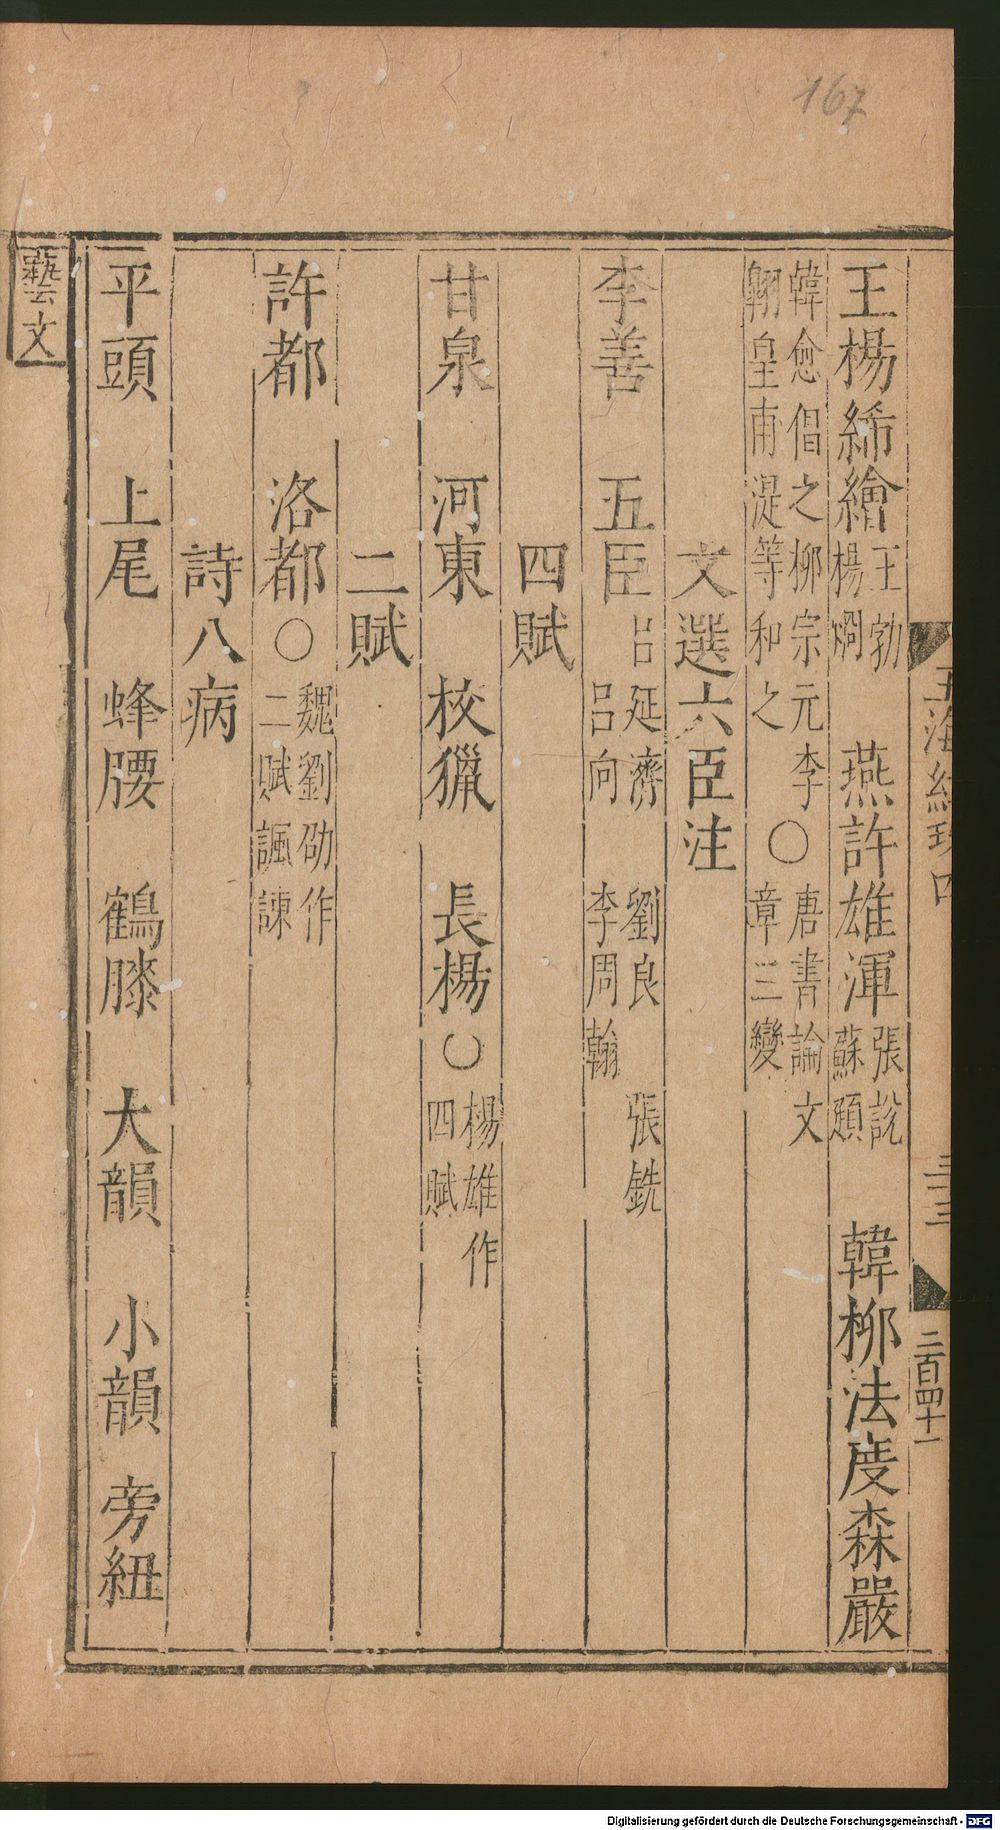 167
王楊絺繪王勃楊烱 燕許雄渾張說蘇頲 韓柳法度森嚴
韓愈倡之柳宗元李翱皇甫湜等和之○唐書論文章三變
文選六臣注
李善 五臣呂延濟 劉良 張銑 呂向 李周翰
四賦
甘泉 河東 校獵 長楊○楊雄作四賦
二賦
許都 洛都○魏劉劭作二賦諷諫
詩八病
平頭 上尾 蜂腰 鶴膝 大韻 小韻 旁紐
藝文
玉海紺珠四
二百四十一
Digitalisierung gefördert durch die Deutsche Forschungsgemeinschaft - DFG